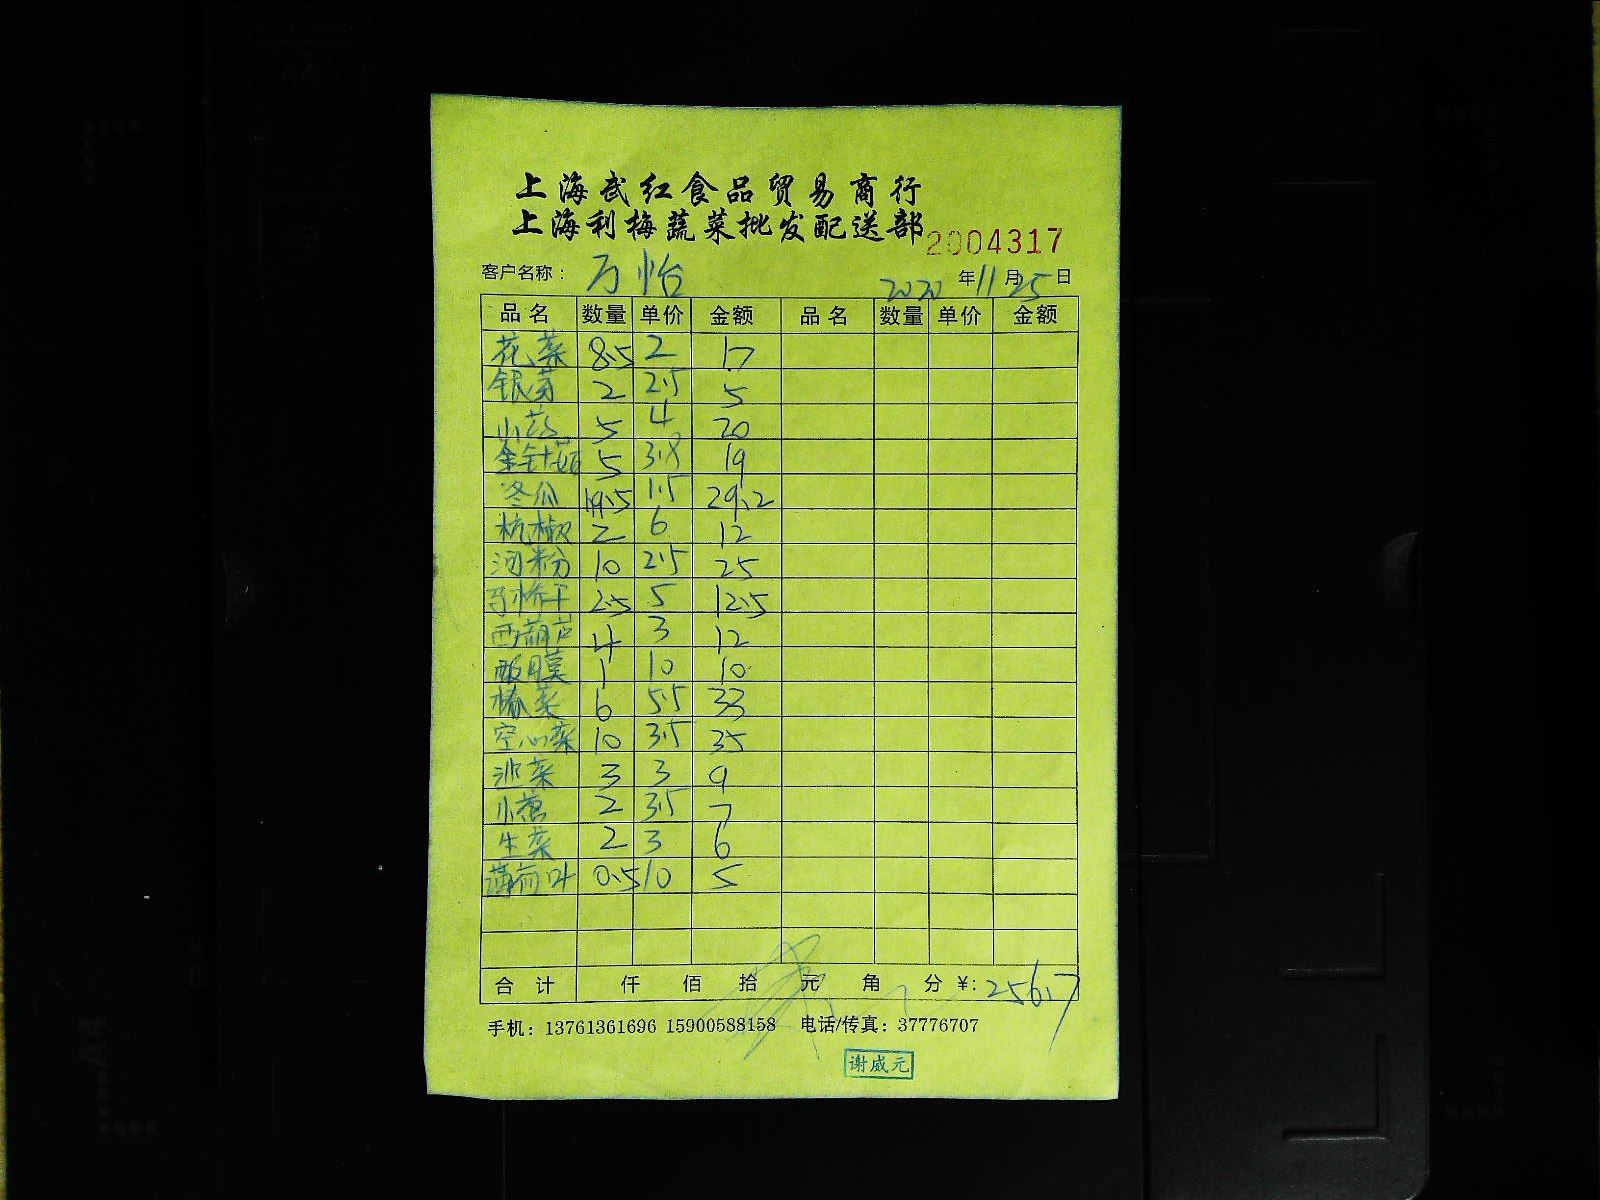 上海武红食品贸易商行
上海利梅蔬菜批发配送部 2004317
客户名称： 万怡 2020 年 11 月 25 日
品名 数量 单价 金额 品名 数量 单价 金额
花菜 8.5 2 17
银芽 2 2.5 5
山药 5 4 20
金针菇 5 3.8 19
冬瓜 19.5 1.5 29.2
杭椒 2 6 12
河粉 10 2.5 25
2.5 5 12.5
西葫芦 4 3 12
膜 1 10 10
菜 6 5.5 33
空心菜 10 3.5 35
菜 3 3 9
小葱 2 3.5 7
生菜 2 3 6
薄荷叶 0.5 10 5
合计 仟 佰 拾 元 角 分 ¥: 256.7
手机：13761361696 15900588158 电话/传真：37776707
谢威元